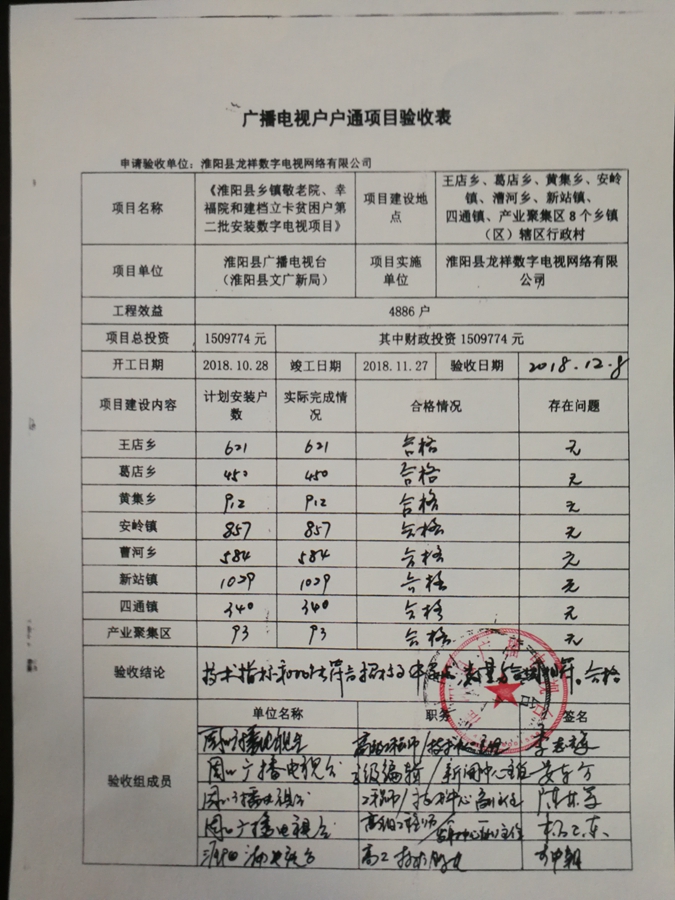 广播电视户户通项目验收表
申请验收单位：淮阳县龙祥数字电视网络有限公司
项目名称
《淮阳县乡镇敬老院、幸
福院和建档立卡贫困户第
二批安装数字电视项目》
项目建设地
点
王店乡、葛店乡、黄集乡、安岭
镇、漕河乡、新站镇、
四通镇、产业聚集区8个乡镇
（区）辖区行政村
项目单位
淮阳县广播电视台
（淮阳县文广新局）
项目实施
单位
淮阳县龙祥数字电视网络有限
公司
工程效益 4886 户
项目总投资 1509774 元 其中财政投资 1509774 元
开工日期 2018.10.28 竣工日期 2018.11.27 验收日期 2018.12.8
项目建设内容
计划安装户
数
实际完成情
况
合格情况 存在问题
王店乡 621 621 合格 无
葛店乡 450 450 合格 无
黄集乡 912 912 合格 无
安岭镇 857 857 合格 无
曹河乡 584 584 合格 无
新站镇 1029 1029 合格 无
四通镇 340 340 合格 无
产业聚集区 93 93 合格 无
验收结论 技术指标 合格
单位名称 职务 签名
验收组成员
周口广播电视台 高级工程师
周口广播电视台 新闻中心主任
周口广播电视台 工程师
周口广播电视台 高级工程师
高工